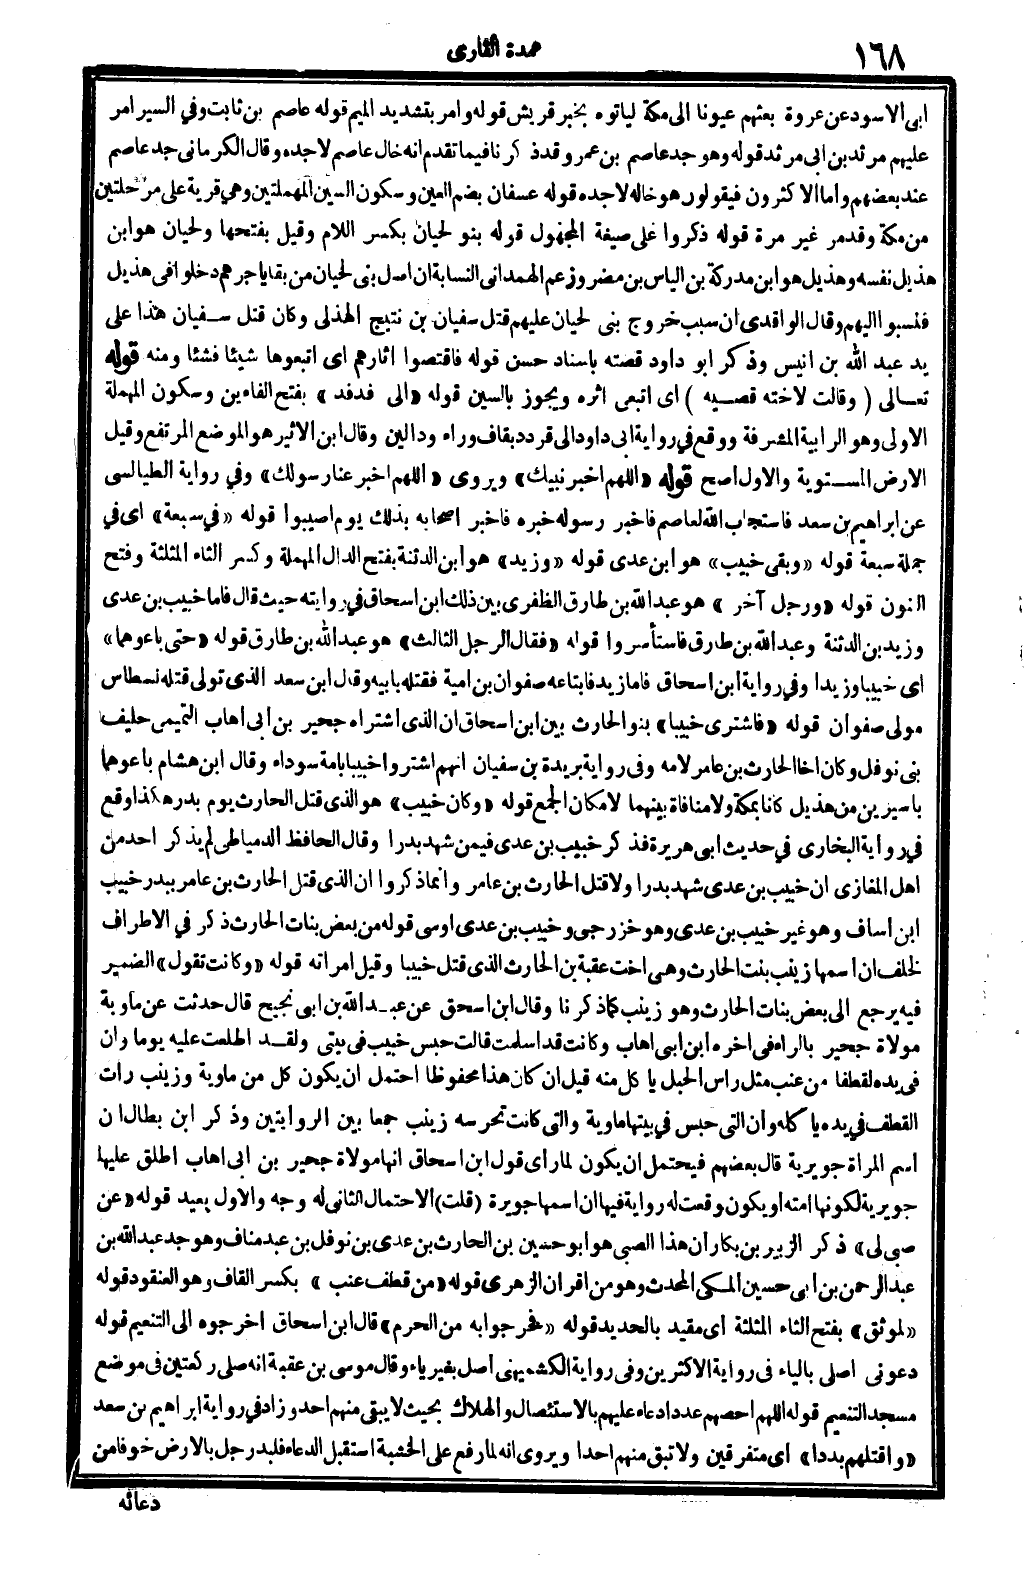 ١٦٨
عمدة القارى
ابى الاسود عن عروة بعثهم عيونا الى مكة لياتوه بخبر قريش قوله وامر بتشديد الميم قوله عاصم بن ثابت وفي السير امر
عليهم مرثد بن ابى مرثد قوله وهو جد عاصم بن عمر وقد ذكرنا فيما تقدم انه خال عاصم لا جده وقال الكرمانى جد عاصم
عند بعضهم واما الاكثرون فيقولون هو خاله لا جده قوله عسفان بضم العين وسكون السين المهملتين وهى قرية على مرحلتين
من مكة وقدمر غير مرة قوله ذكروا على صيغة المجهول قوله بنو لحيان بكسر اللام وقيل بفتحها ولحيان هو ابن
هذيل نفسه وهذيل هو ابن مدركة بن الياس بن مضر وزعم الهمدانى النسابة ان اصل بنى لحيان من بقايا جرهم دخلوا فى هذيل
فنسبوا اليهم وقال الواقدى ان سبب خروج بنى لحيان عليهم قتل سفيان بن نتيج الهذلى وكان قتل سفيان هذا على
يد عبد الله بن انيس وذكر ابو داود قصته باسناد حسن قوله فاقتصوا اثارهم اى اتبعوها شيئا فشئا ومنه قوله
تعالى ( وقالت لاخته قصيه ) اى اتبعى اثره ويجوز بالسين قوله «الى فدفد» بفتح الفاءين وسكون المهملة
الاولى وهو الرابية المشرفة ووقع في رواية ابى داود الى قردد بقاف وراء ودالين وقال ابن الاثير هو الموضع المرتفع وقيل
الارض المستوية والاول اصح قوله «اللهم اخبر نبيك» ويروى «اللهم اخبر عنا رسولك» وفي رواية الطيالسى
عن ابراهيم بن سعد فاستجاب الله لعاصم فاخبر رسوله خبره فاخبر اصحابه بذلك يوم اصيبوا قوله «في سبعة» اى في
جملة سبعة قوله «وبقى خبيب» هو ابن عدى قوله «وزيد» هو ابن الدثنة بفتح الدال المهملة وكسر الثاء المثلثة وفتح
النون قوله «ورجل آخر» هو عبد الله بن طارق الظفرى بين ذلك ابن اسحاق في روايته حيث قال فاما خبيب بن عدى
وزيد بن الدثنة وعبد الله بن طارق فاستأسروا قوله «فقال الرجل الثالث» هو عبد الله بن طارق قوله «حتى باعوهما»
اى خبيبا وزيدا وفي رواية ابن اسحاق فاما زيد فابتاعه صفوان بن امية فقتله بابيه وقال ابن سعد الذى تولى قتله نسطاس
مولى صفوان قوله «فاشترى خبيبا» بنو الحارث بين ابن اسحاق ان الذى اشتراه جحير بن ابى اهاب التميمى حليف
بنى نوفل وكان اخا الحارث بن عامر لامه وفى رواية بريدة بن سفيان انهم اشتروا خبيبا بامة سوداء وقال ابن هشام باعوهما
باسيرين من هذيل كانا بمكة ولا منافاة بينهما لامكان الجمع قوله «وكان خبيب» هو الذى قتل الحارث يوم بدر هكذا وقع
في رواية البخارى في حديث ابى هريرة فذكر خبيب بن عدى فيمن شهد بدرا وقال الحافظ الدمياطى لم يذكر احد من
اهل المغازى ان خبيب بن عدى شهد بدرا ولا قتل الحارث بن عامر وانما ذكروا ان الذى قتل الحارث بن عامر ببدر خبيب
ابن أساف وهو غير خبيب بن عدى وهو خزرجى وخبيب بن عدى اوسى قوله من بعض بنات الحارث ذكر في الاطراف
لخلف ان اسمها زينب بنت الحارث وهى اخت عقبة بن الحارث الذى قتل خبيبا وقيل امراته قوله «وكانت تقول» الضمير
فيه يرجع الى بعض بنات الحارث وهو زينب كما ذكرنا وقال ابن اسحق عن عبد الله بن ابى نجيح قال حدثت عن ماوية
مولاة جحير بالراء فى اخره ابن ابى اهاب وكانت قد اسلمت قالت حبس خبيب فى بيتى ولقد اطلعت عليه يوما وان
فى يده لقطفا من عنب مثل راس الحبل يا كل منه قيل ان كان هذا محفوظا احتمل ان يكون كل من ماوية وزينب رات
القطف في يده يا كله وان التى حبس في بيتها ماوية والتى كانت تحرسه زينب جمعا بين الروايتين وذكر ابن بطال ان
اسم المراة جويرية قال بعضهم فيحتمل ان يكون لما راى قول ابن اسحاق انها مولاة جحير بن ابى اهاب اطلق عليها
جويرية لكونها امته او يكون وقعت له رواية فيها ان اسمها جويرة (قلت) الاحتمال الثانى له وجه والاول بعيد قوله «عن
صبى لى» ذكر الزبير بن بكار ان هذا الصبى هو ابو حسين بن الحارث بن عدى بن نوفل بن عبد مناف وهو جد عبد الله بن
عبد الرحمن بن ابى حسين المكى المحدث وهو من اقران الزهرى قوله «من قطف عنب» بكسر القاف وهو العنقود قوله
«لموثق» بفتح الثاء المثلثة اى مقيد بالحديد قوله «فخرجوا به من الحرم» قال ابن اسحاق اخرجوه الى التنعيم قوله
دعونى اصلى بالياء فى رواية الاكثرين وفى رواية الكشميهنى أصل بغير ياء وقال موسى بن عقبة انه صلى ركعتين فى موضع
مسجد التنعيم قوله اللهم احصهم عددا دعاء عليهم بالاستئصال والهلاك بحيث لا يبقى منهم احد وزاد في رواية ابراهيم بن سعد
«واقتلهم بددا» اى متفرقين ولا تبق منهم احدا ويروى انه لما رفع على الخشبة استقبل الدعاء فلبد رجل بالارض خوفا من
دعائه